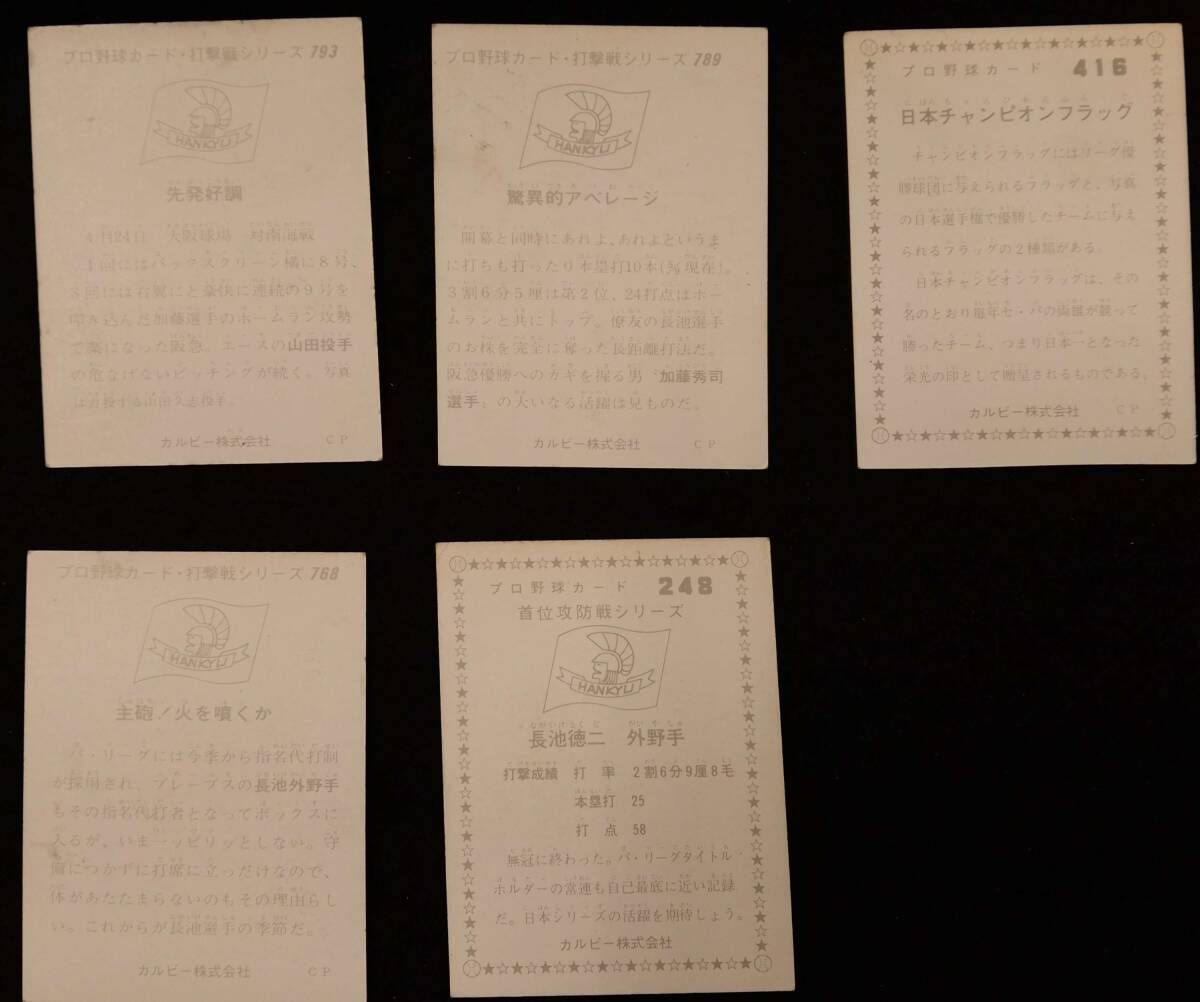 プロ野球カード・打撃戦シリーズ 793
HANKYU
先発好調
4月24日 大阪球場 対南海戦
1回にはバックスクリーン橫に8号、
3回には右翼にと豪快に連続の9号を
叩き込んだ加藤選手のホームラン攻勢
で楽になった阪急。エースの山田投手
の危なげないピッチングが続く。写真
は力投する山田久志投手。
カルビー株式会社 CP
プロ野球カード・打撃戦シリーズ 789
HANKYU
驚異的アベレージ
開幕と同時にあれよ、あれよというま
に打ちも打ったり本塁打10本(5/9現在)。
3割6分5厘は第2位、24打点はホー
ムランと共にトップ。僚友の長池選手
のお株を完全に奪った長距離打法だ。
阪急優勝へのカギを握る男“加藤秀司
選手”の大いなる活躍は見ものだ。
カルビー株式会社 CP
プロ野球カード 416
日本チャンピオンフラッグ
チャンピオンフラッグにはリーグ優
勝球団に与えられるフラッグと、写真
の日本選手権で優勝したチームに与え
られるフラッグの2種類がある。
日本チャンピオンフラッグは、その
名のとおり毎年セ・パの両雄が競って
勝ったチーム、つまり日本一となった
栄光の印として贈呈されるものである。
カルビー株式会社 CP
プロ野球カード・打撃戦シリーズ 768
HANKYU
主砲！火を噴くか
パ・リーグには今季から指名代打制
が採用され、ブレーブスの長池外野手
もその指名代打者となってボックスに
入るが、いま一ッピリッとしない。守
備につかずに打席に立っだけなので、
体があたたまらないのもその理由らし
い。これからが長池選手の季節だ。
カルビー株式会社 CP
プロ野球カード 248
首位攻防戦シリーズ
HANKYU
ながいけとくじ がいやしゅ
長池徳二 外野手
打撃成績 打率 2割6分9厘8毛
本塁打 25
打点 58
無冠に終わった。パ・リーグタイトル
ホルダーの常連も自己最底に近い記録
だ。日本シリーズの活躍を期待しょう。
カルビー株式会社